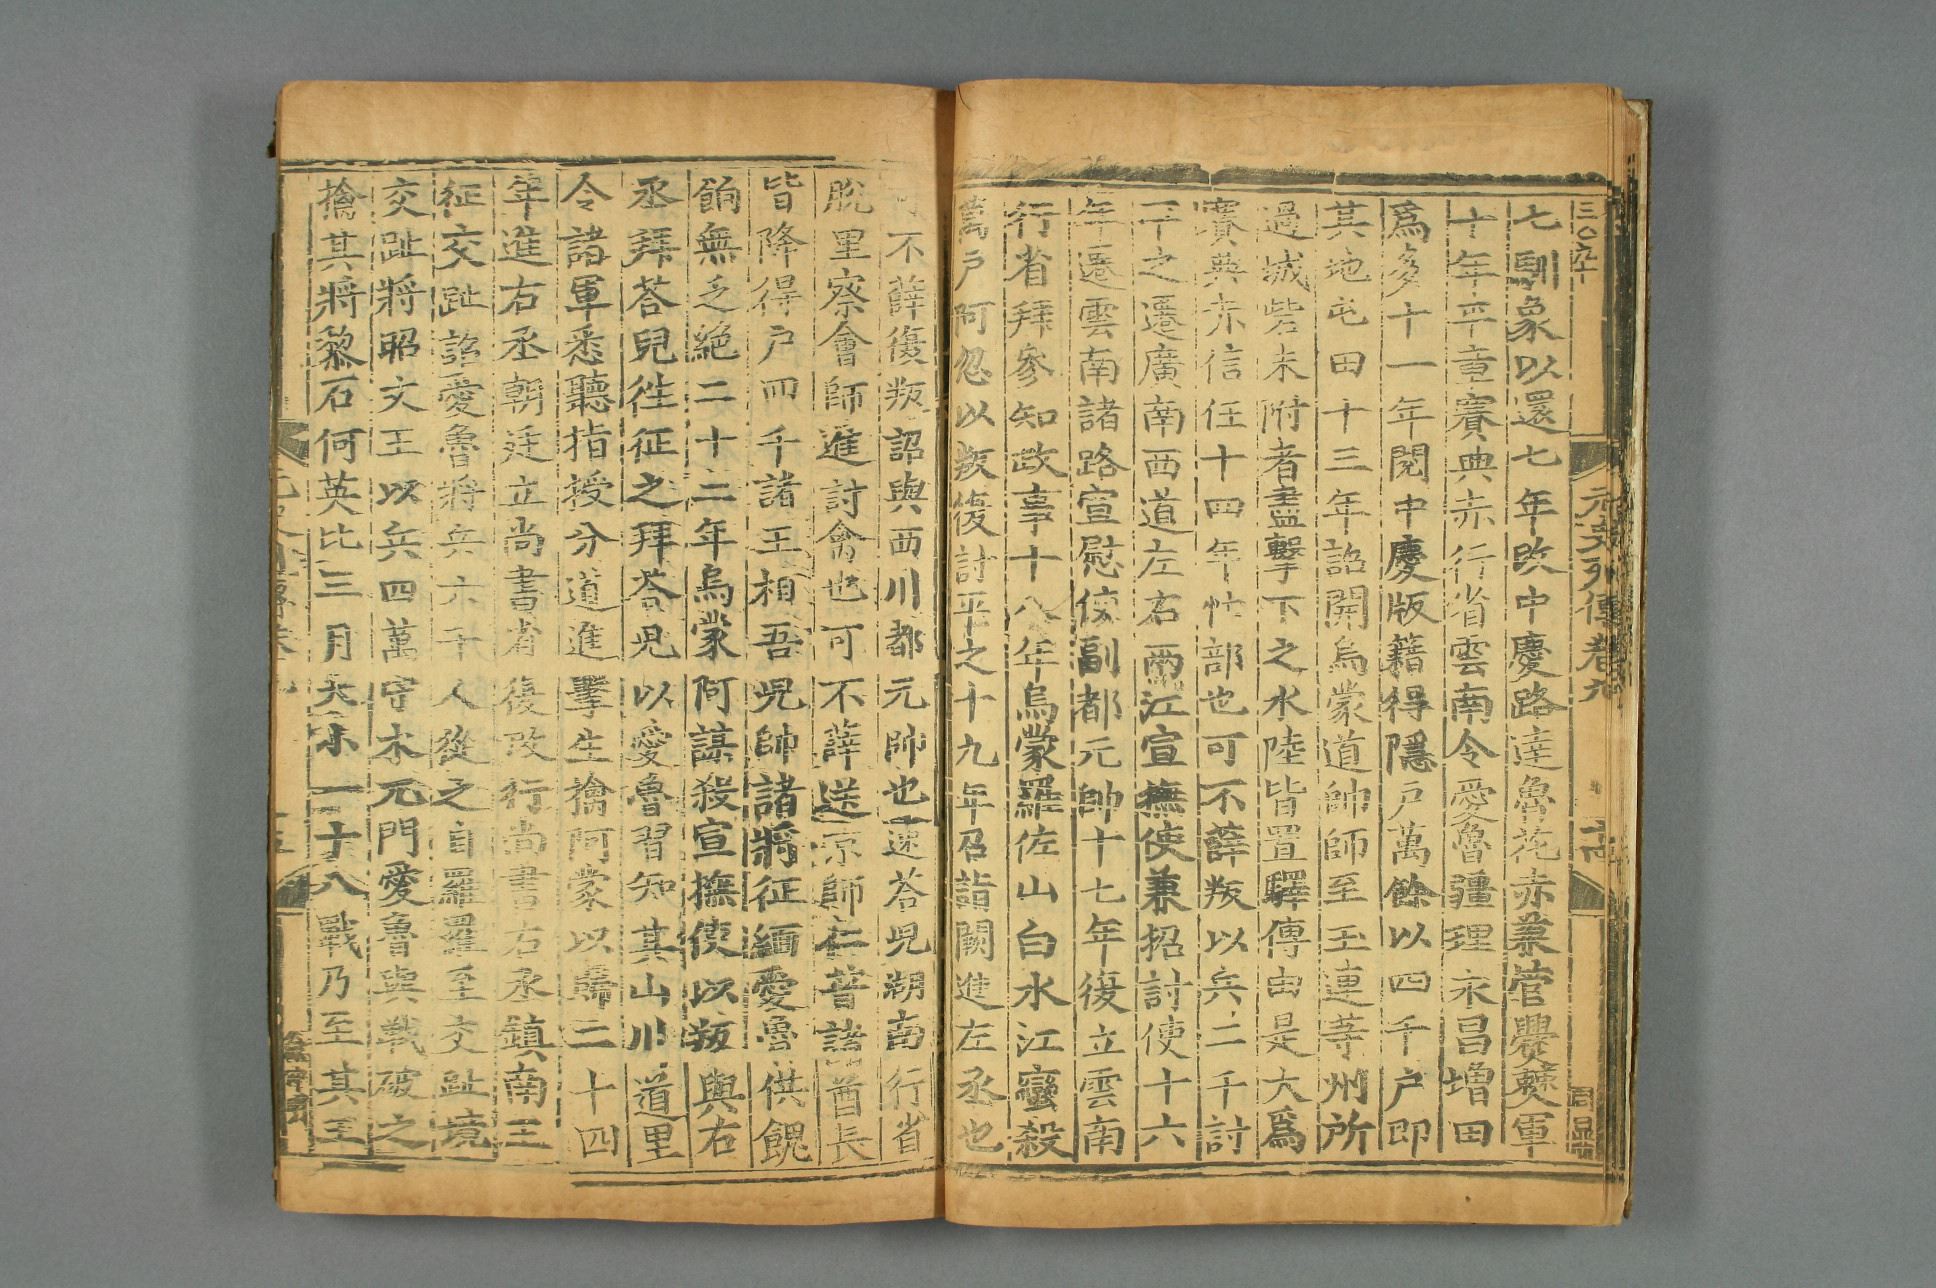 三百九十
元史列傳卷九
十四
周㬎
七馴象以還七年改中慶路達魯花赤兼管爨僰軍
十年平章賽典赤行省雲南令愛魯疆理永昌增田
爲多十一年閱中慶版籍得隱戶萬餘以四千戶即
其地屯田十三年詔開烏蒙道帥師至玉連等州所
過城砦未附者盡擊下之水陸皆置驛傳由是大爲
賽典赤信任十四年忙部也可不薛叛以兵二千討
平之遷廣南西道左右兩江宣撫使兼招討使十六
年遷雲南諸路宣慰使副都元帥十七年復立雲南
行省拜參知政事十八年烏蒙羅佐山白水江蠻殺
萬戶阿忽以叛復討平之十九年召詣闕進左丞也
可不薛復叛詔與西川都元帥也速荅兒湖南行省
脫里察會師進討禽也可不薛送京師仁普諸酋長
皆降得户四千諸王相吾兒帥諸將征緬愛魯供餽
餉無乏絕二十二年烏蒙阿謀殺宣撫使以叛與右
丞拜荅兒徃征之拜荅兒以愛魯習知其山川道里
令諸軍悉聽指授分道進擊生擒阿蒙以歸二十四
年進右丞朝廷立尚書省復改行尚書右丞鎮南王
征交趾詔愛魯將兵六千人從之自羅羅至交趾境
交趾將昭文王以兵四萬守木兀門愛魯與戰破之
擒其將黎石何英比三月大小一十八戰乃至其王